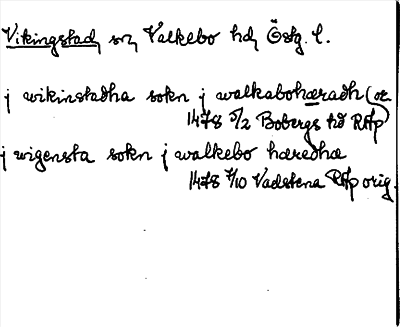 Vikingstad, sn, Valkebo hd, Östg. l.
j wikinstadha sokn j walkabohæradh (or.
1478 5/2 Bobergs hd RAp
j wigensta sokn j walkebo hæredhæ
1478 7/10 Vadstena RAp orig.